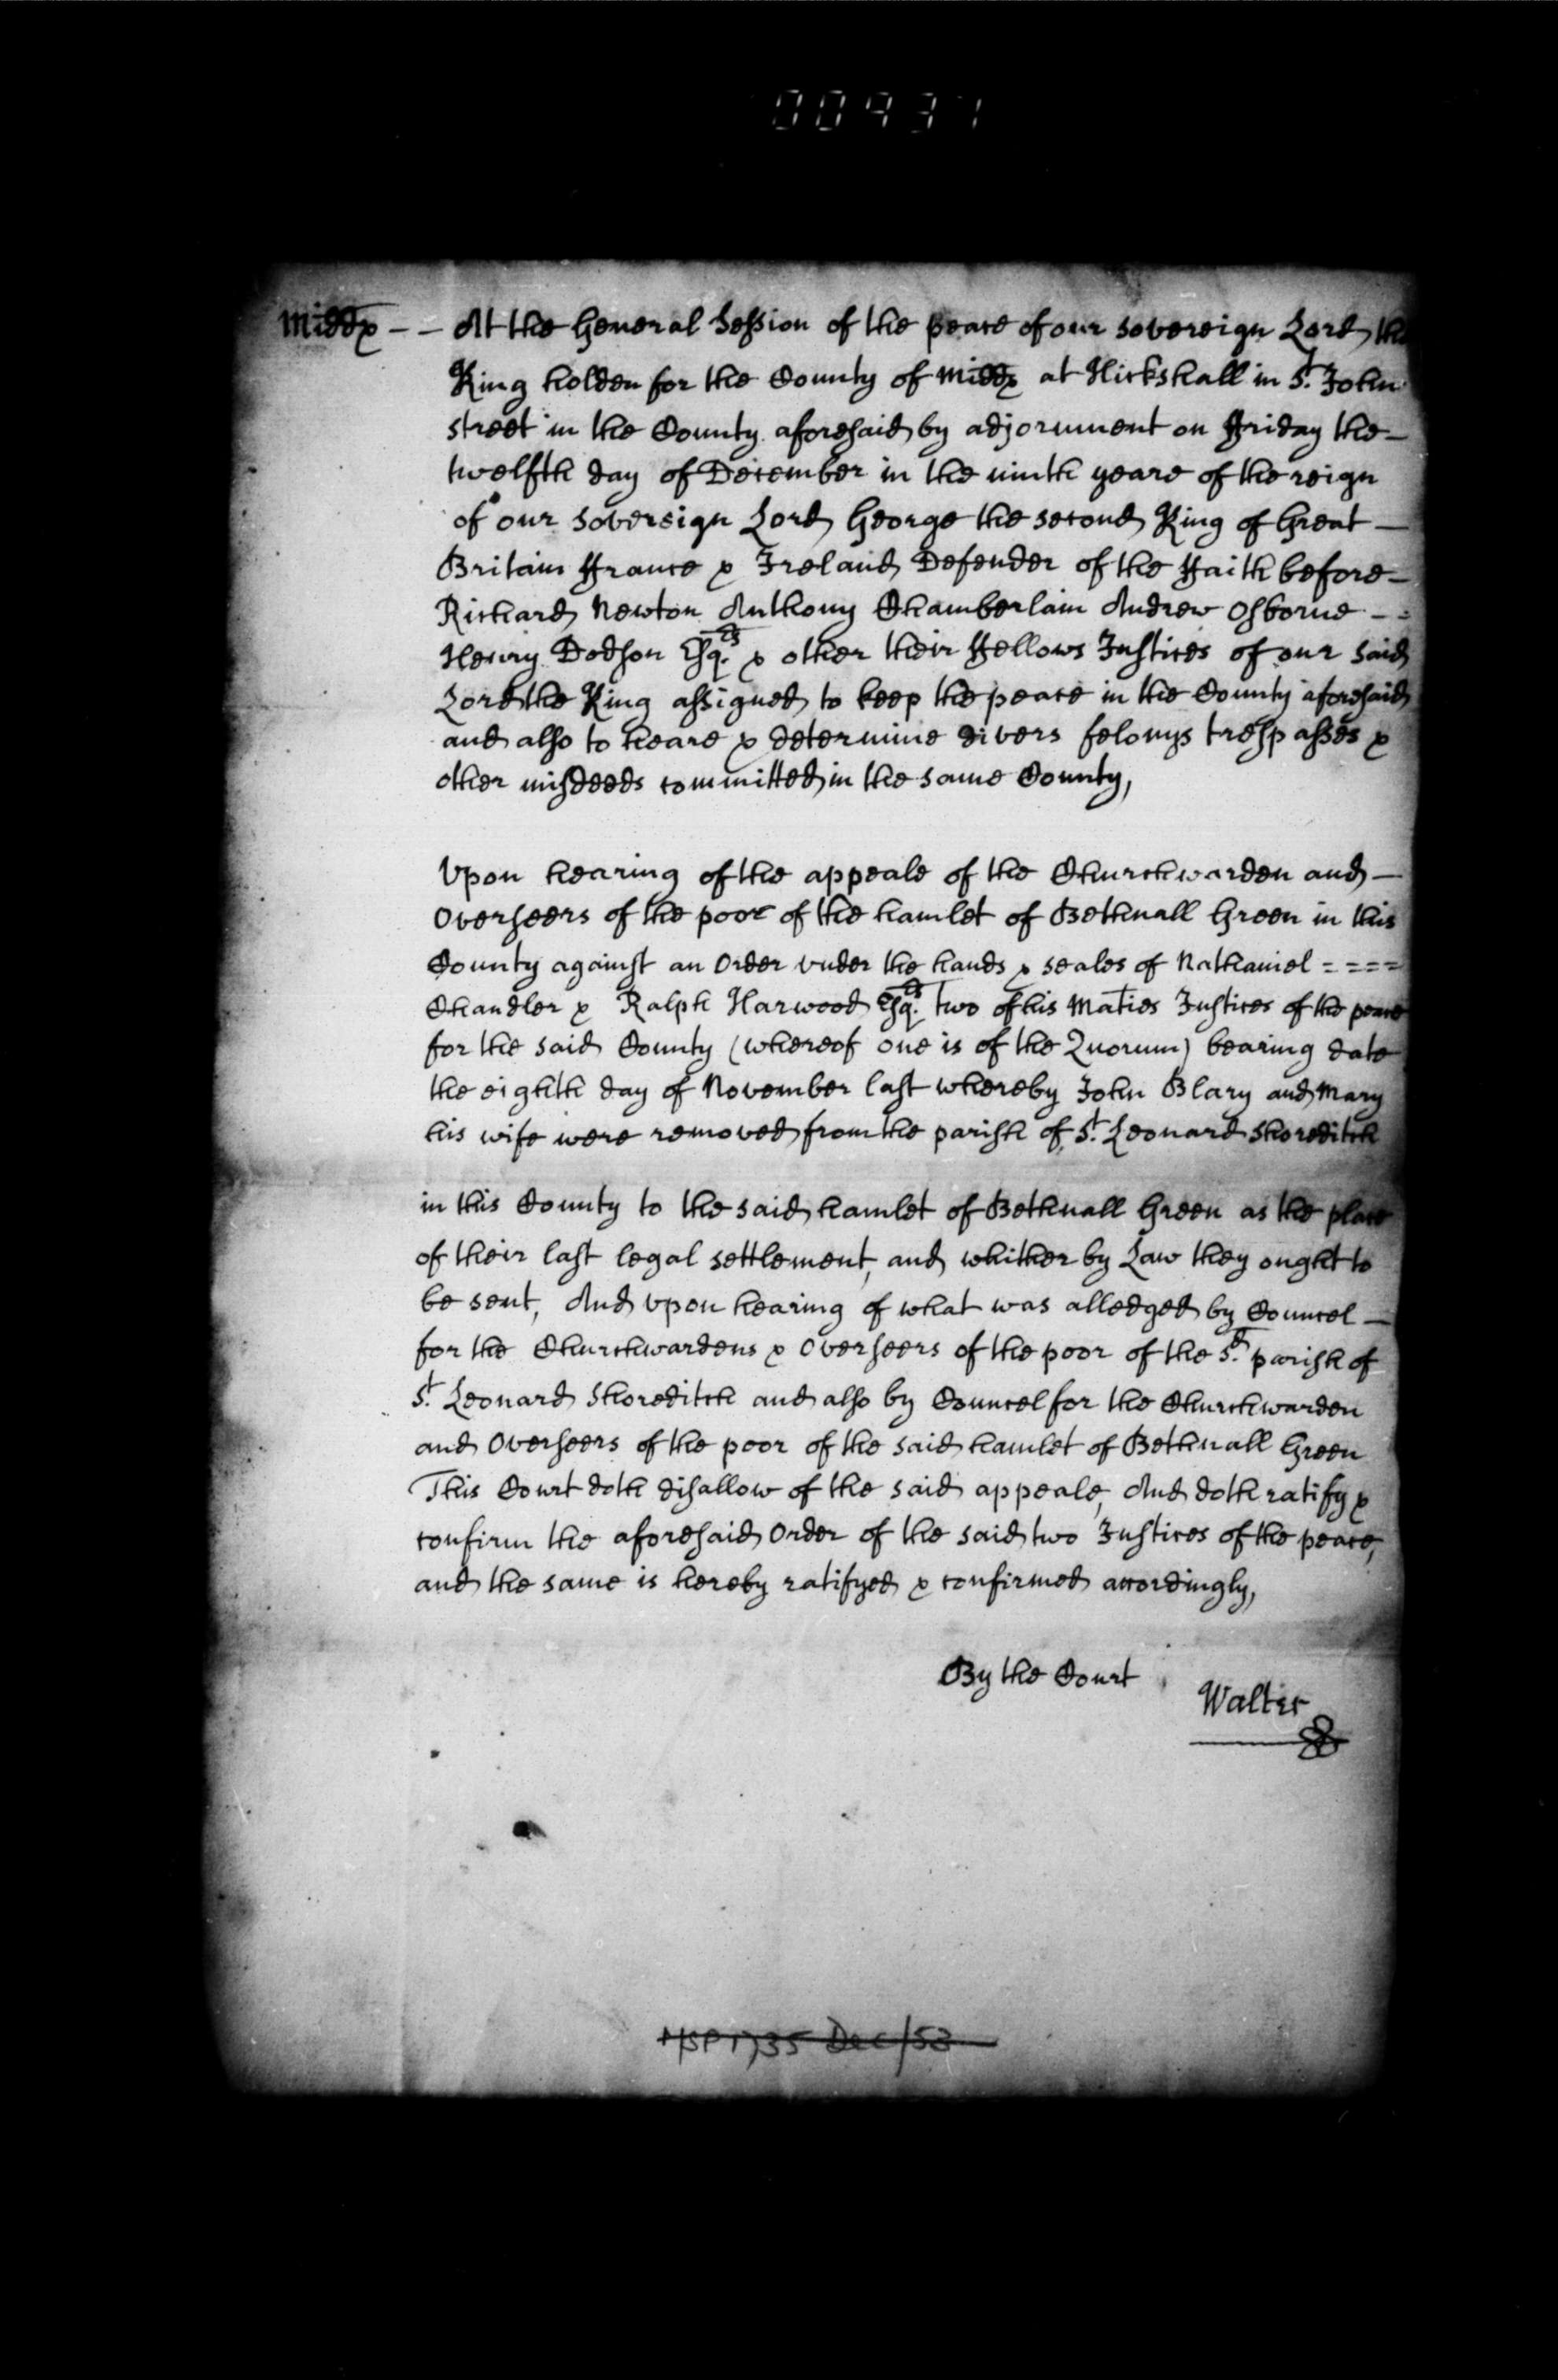 00937
Middx - - At the General Session of the peace of our sovereign Lord the
King holden for the County of Middx at Hickshall in St. John
street in the County aforesaid by adjornment on ffriday the -
twelfth day of December in the ninth yeare of the reign
of our sovereign Lord George the second King of Great -
Britain ffrance & Ireland Defender of the ffaith before -
Richard Newton Anthony Chamberlain Andrew Osborne - :
Henry Dodson Esqrs. & other their ffellows Justices of our said
Lord the King assigned to keep the peace in the County aforesaid
and also to heare & determine divers felonys trespasses &
other misdeeds committed in the same County,
Vpon hearing of the appeale of the Churchwarden and -
Overseers of the poor of the hamlet of Bethnall Green in this
County against an Order vnder the hands & seales of Nathaniel = = = =
Chandler & Ralph Harwood Esqrs. two of his Maties Justices of the peace
for the said County (whereof one is of the Quorum) bearing date
the eighth day of November last whereby John Blary and Mary
his wife were removed from the parish of St. Leonard Shoreditch
in this County to the said hamlet of Bethnall Green as the place
of their last legal settlement, and whither by Law they ought to
be sent, And vpon hearing of what was alledged by Councel -
for the Churchwardens & Overseers of the poor of the sd. parish of
St. Leonard Shoreditch and also by Councel for the Churchwarden
and Overseers of the poor of the said hamlet of Bethnall Green
This Court doth disallow of the said appeale, And doth ratify &
confirm the aforesaid Order of the said two Justices of the peace,
and the same is hereby ratifyed & confirmed accordingly,
By the Court
Walter
MSP 1735 Dec/53